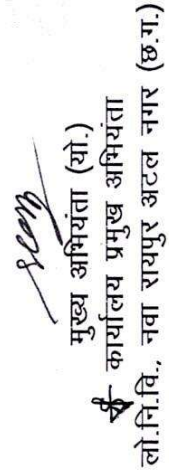 मुख्य अभियंता (यो.)
कार्यालय प्रमुख अभियंता
लो.नि.वि., नवा रायपुर अटल नगर (छ.ग.)